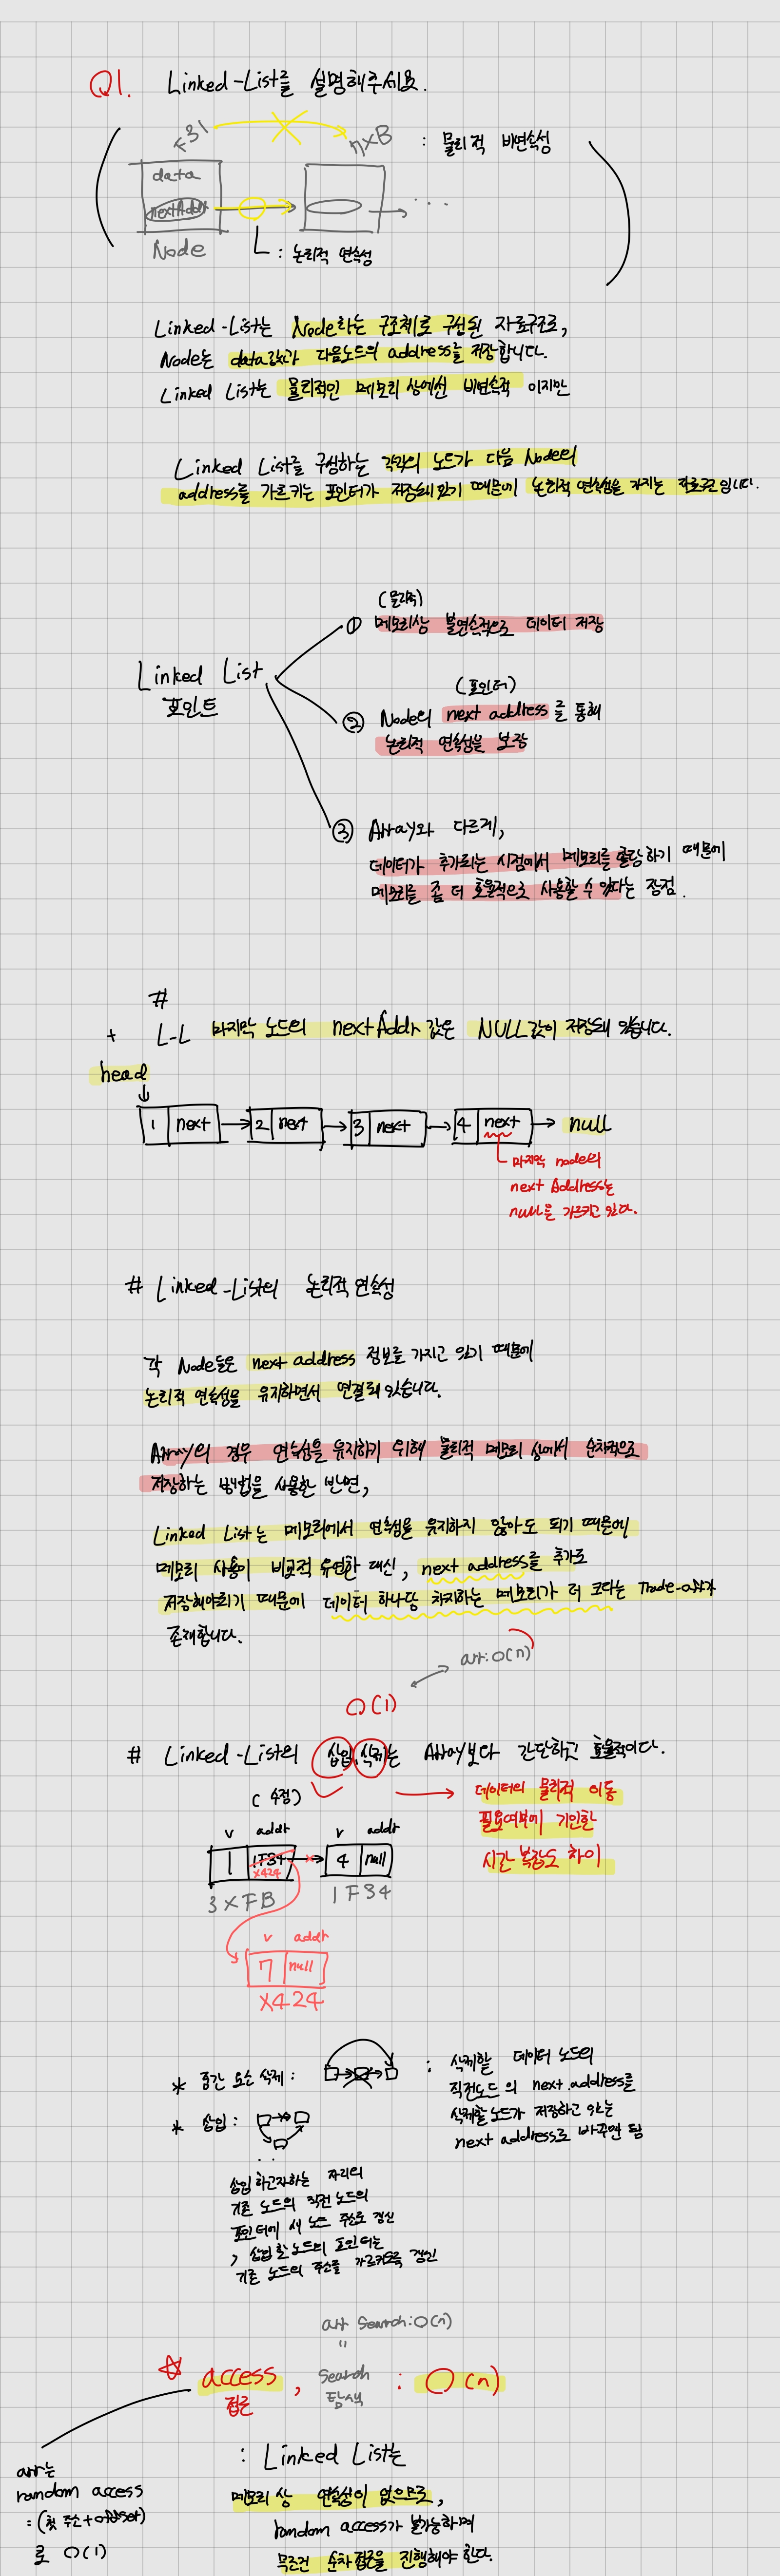 Q1. Linked-List를 설명해주세요.
F31
nxB : 물리적 비연속성
data
nextAddr
...
Node
: 논리적 연속성
Linked-List는 Node라는 구조체로 구성된 자료구조로,
Node는 data값과 다음노드의 address를 저장합니다.
Linked List는 물리적인 메모리 상에선 비연속적 이지만
Linked List를 구성하는 각각의 노드가 다음 Node의
address를 가르키는 포인터가 저장돼있기 때문에 논리적 연속성을 가지는 자료구조입니다.
(물리적)
① 메모리상 불연속적으로 데이터 저장
Linked List
포인트
(포인터)
② Node의 next address를 통해
논리적 연속성을 보장
③ Array와 다르게,
데이터가 추가되는 시점에서 메모리를 할당하기 때문에
메모리를 좀 더 효율적으로 사용할 수 있다는 장점.
#
+ L-L 마지막 노드의 nextAddr 값은 NULL값이 저장돼 있습니다.
head
1 next 2 next 3 next 4 next null
마지막 node의
next Address는
null을 가르키고 있다.
# Linked-List의 논리적 연속성
각 Node들은 next address 정보를 가지고 있기 때문에
논리적 연속성을 유지하면서 연결돼있습니다.
Array의 경우 연속성을 유지하기 위해 물리적 메모리 상에서 순차적으로
저장하는 방법을 사용한 반면,
Linked List는 메모리에서 연속성을 유지하지 않아도 되기 때문에
메모리 사용이 비교적 유연한 대신, next address를 추가로
저장해야되기 때문에 데이터 하나당 차지하는 메모리가 더 크다는 Trade-off가
존재합니다.
arr:O(n)
O(1)
# Linked-List의 삽입,삭제는 Array보다 간단하고 효율적이다.
(수정)
데이터의 물리적 이동
필요여부에 기인한
시간 복잡도 차이
v addr v addr
1 1F34 4 null
x424
3XFB 1F34
v addr
7 null
X424
* 중간 요소 삭제 : : 삭제할 데이터 노드의
직전노드의 next address를
삭제할노드가 저장하고 있는
next address로 바꾸면 됨
* 삽입 :
삽입 하고자하는 자리의
기존 노드의 직전 노드의
포인터에 새 노드 주소로 갱신
, 삽입할 노드의 포인터는
기존 노드의 주소를 가르키도록 갱신
arr Search:O(n)
"
☆ access, Search : O(n)
접근 탐색
: Linked List는
메모리 상 연속성이 없으므로,
random access가 불가능하며
무조건 순차접근을 진행해야 한다.
arr는
random access
:(첫 주소+offset)
로 O(1)